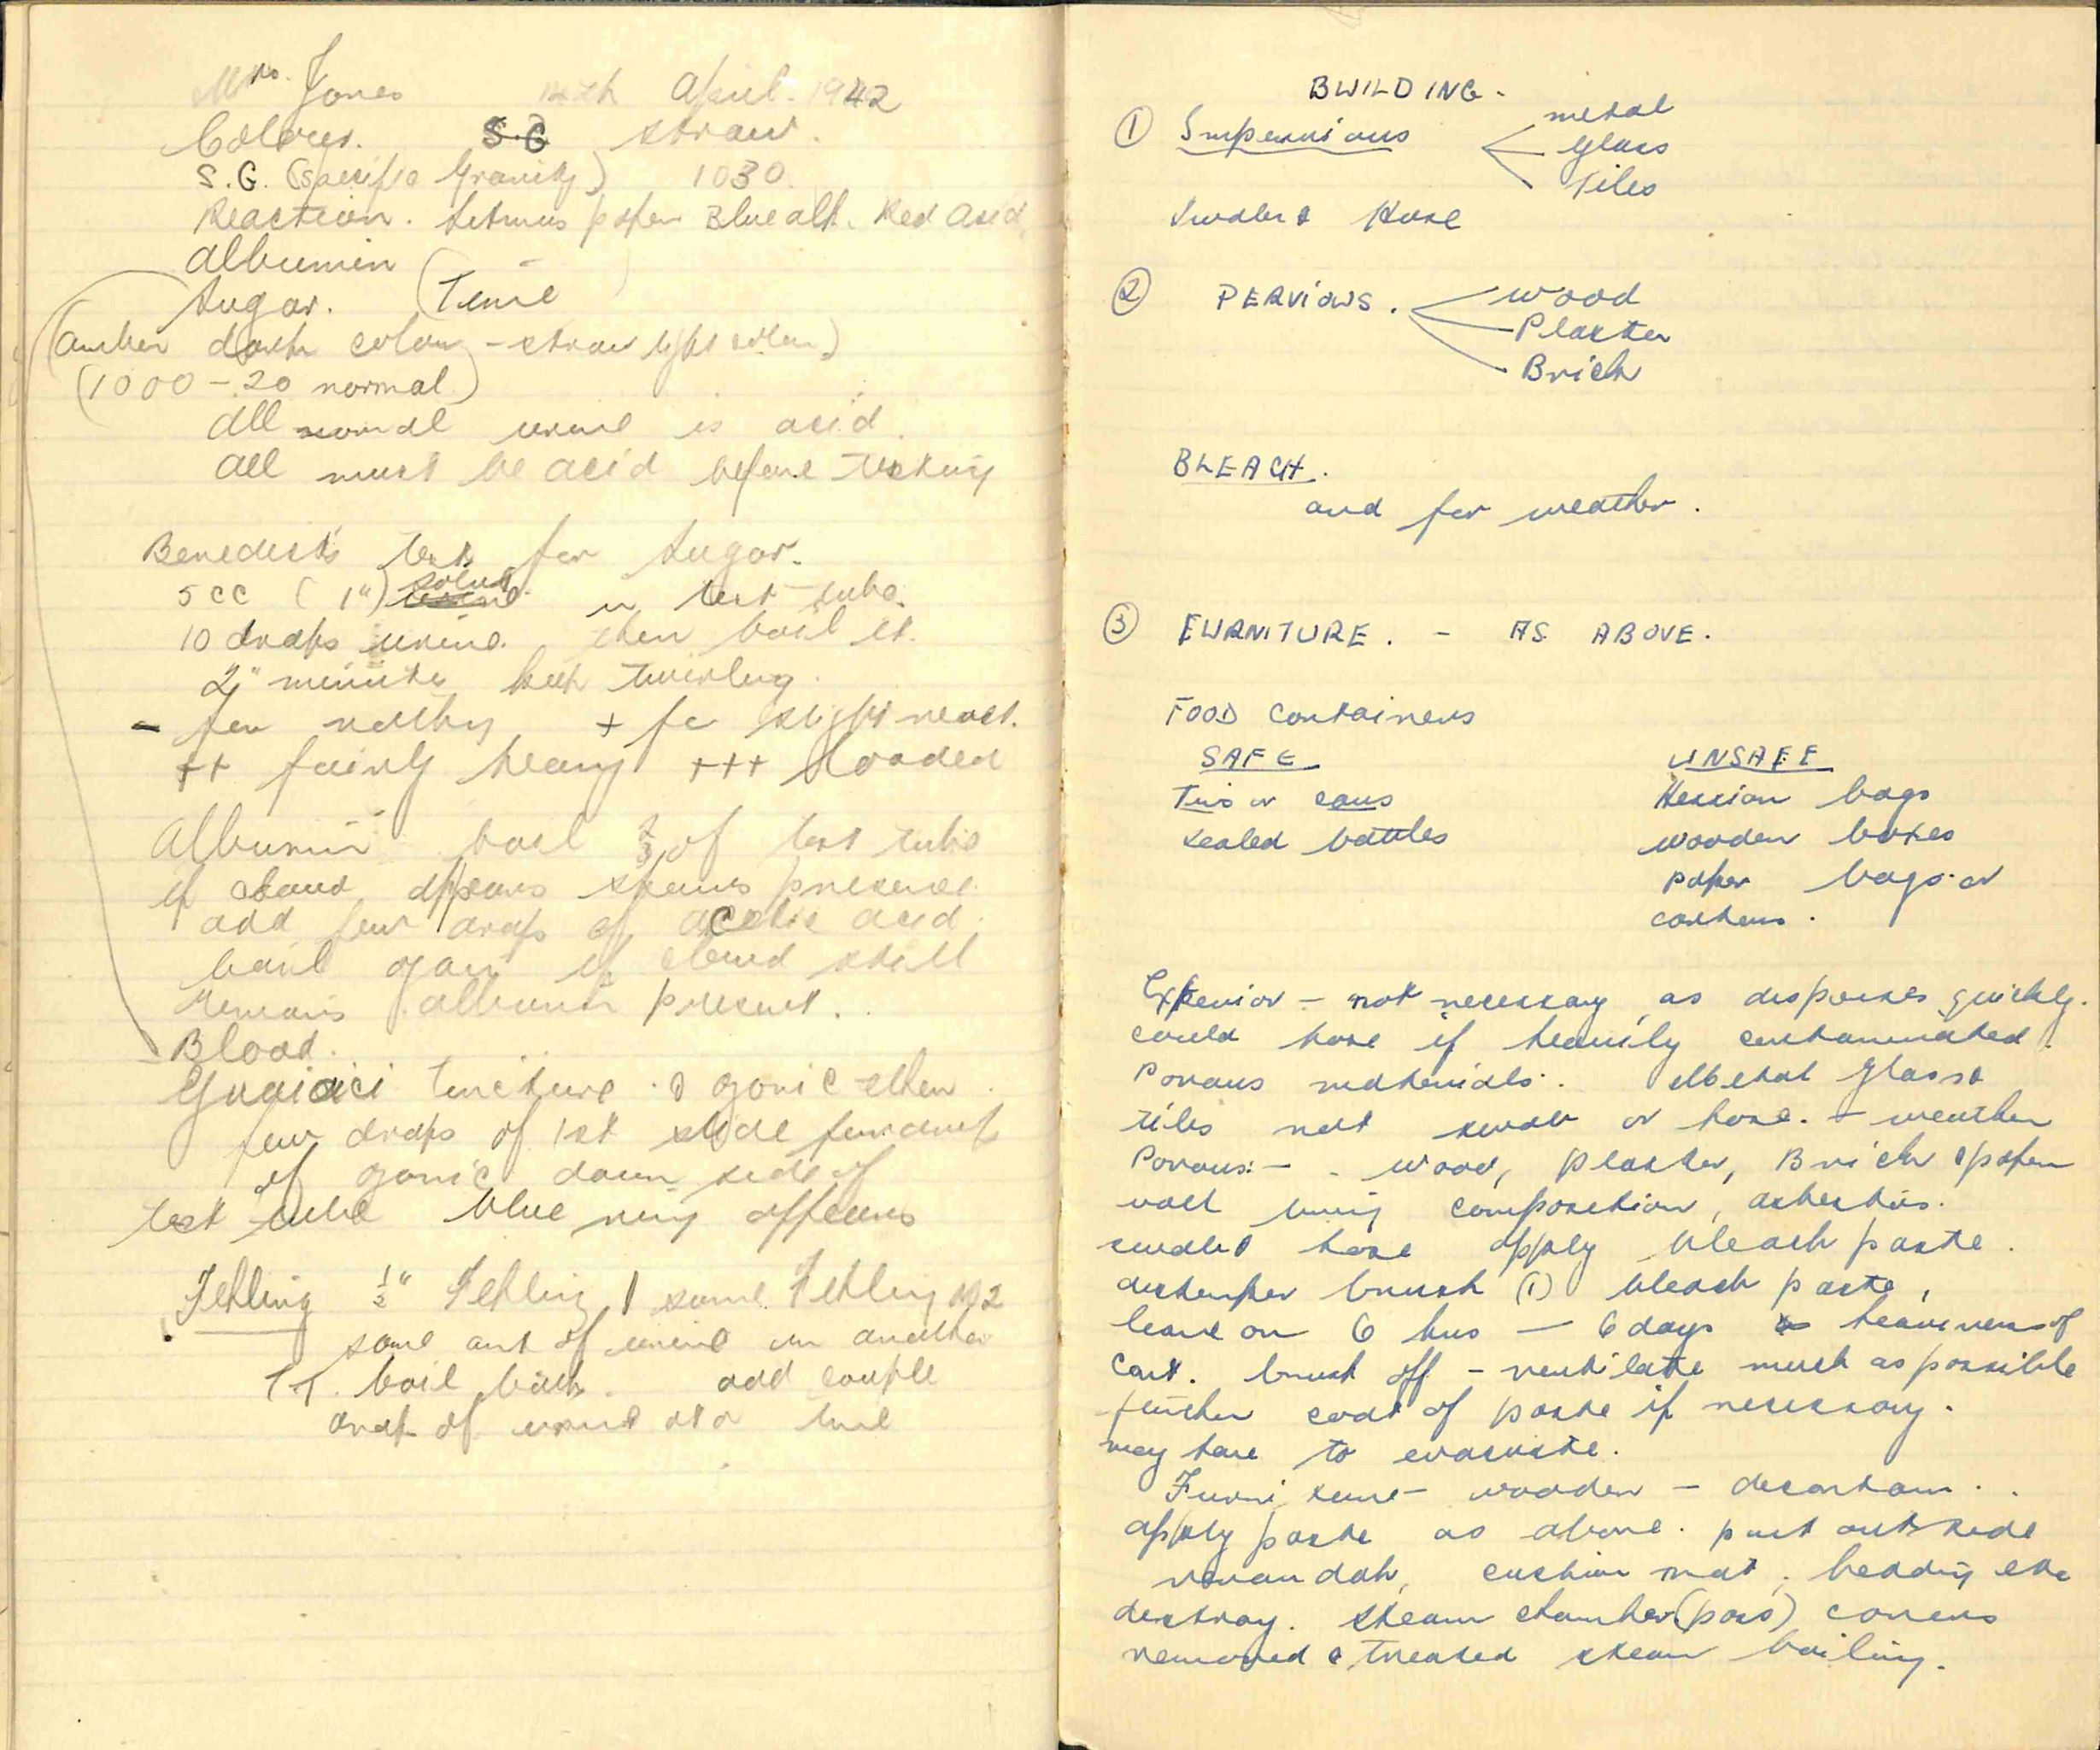 Mrs. Jones 14th April. 1942
Colour. S.G straw.
S.G. (Specific Gravity) 1030.
Reaction. Litmus paper Blue alk. Red Acid.
Albumin -
Sugar. (Time
(Amber dark colour - straw light colour)
(1000 - 20 normal)
All normal urine is acid.
All must be acid before testing
Benedicts test for Sugar.
5 cc (1") solut. in test tube.
10 drops urine. then boil it.
2" minutes keep twirling.
- for nothing + for slight react.
++ fairly heavy +++ loaded
Albumin boil 2/3 of test tube
if cloud appears presence
add few drops of acetic acid.
boil again if cloud still
remains albumin present.
Blood.
Guaiaci tincture & ozonic ether.
few drops of 1st slide
of ozonic down side of
test tube blue ring appears
Fehling 1/2" Fehling 1 same Fehling No 2
same amt of urine in another
T.T. boil both. add couple
drop of urine at a time
BUILDING.
① Impervious
metal
Glass
Tiles
Swab & Hose
② PERVIOUS.
Wood
Plaster
Brick
BLEACH.
and for weather.
③ FURNITURE. - AS ABOVE.
FOOD Containers
SAFE UNSAFE
Tins or cans Hessian bags
sealed bottles wooden boxes
paper bags or
cartons.
Exterior - not necessary as disperses quickly.
could hose if heavily contaminated.
Porous materials. Metal Glass &
tiles not swab or hose. - weather
Porous: - wood, plaster, Brick & paper
wall lining composition, asbestos.
swab & hose apply bleach paste.
distemper brush (1) bleach paste,
leave on 6 hrs - 6 days heaviness of
Cont. brush off - ventilate much as possible
further coat of paste if necessary.
may have to evacuate.
Furniture - wooden - decontam..
apply paste as above. put outside
verandah, cushion mat, bedding etc
destroy. steam chamber (poss) covers
removed & treated steam boiling.